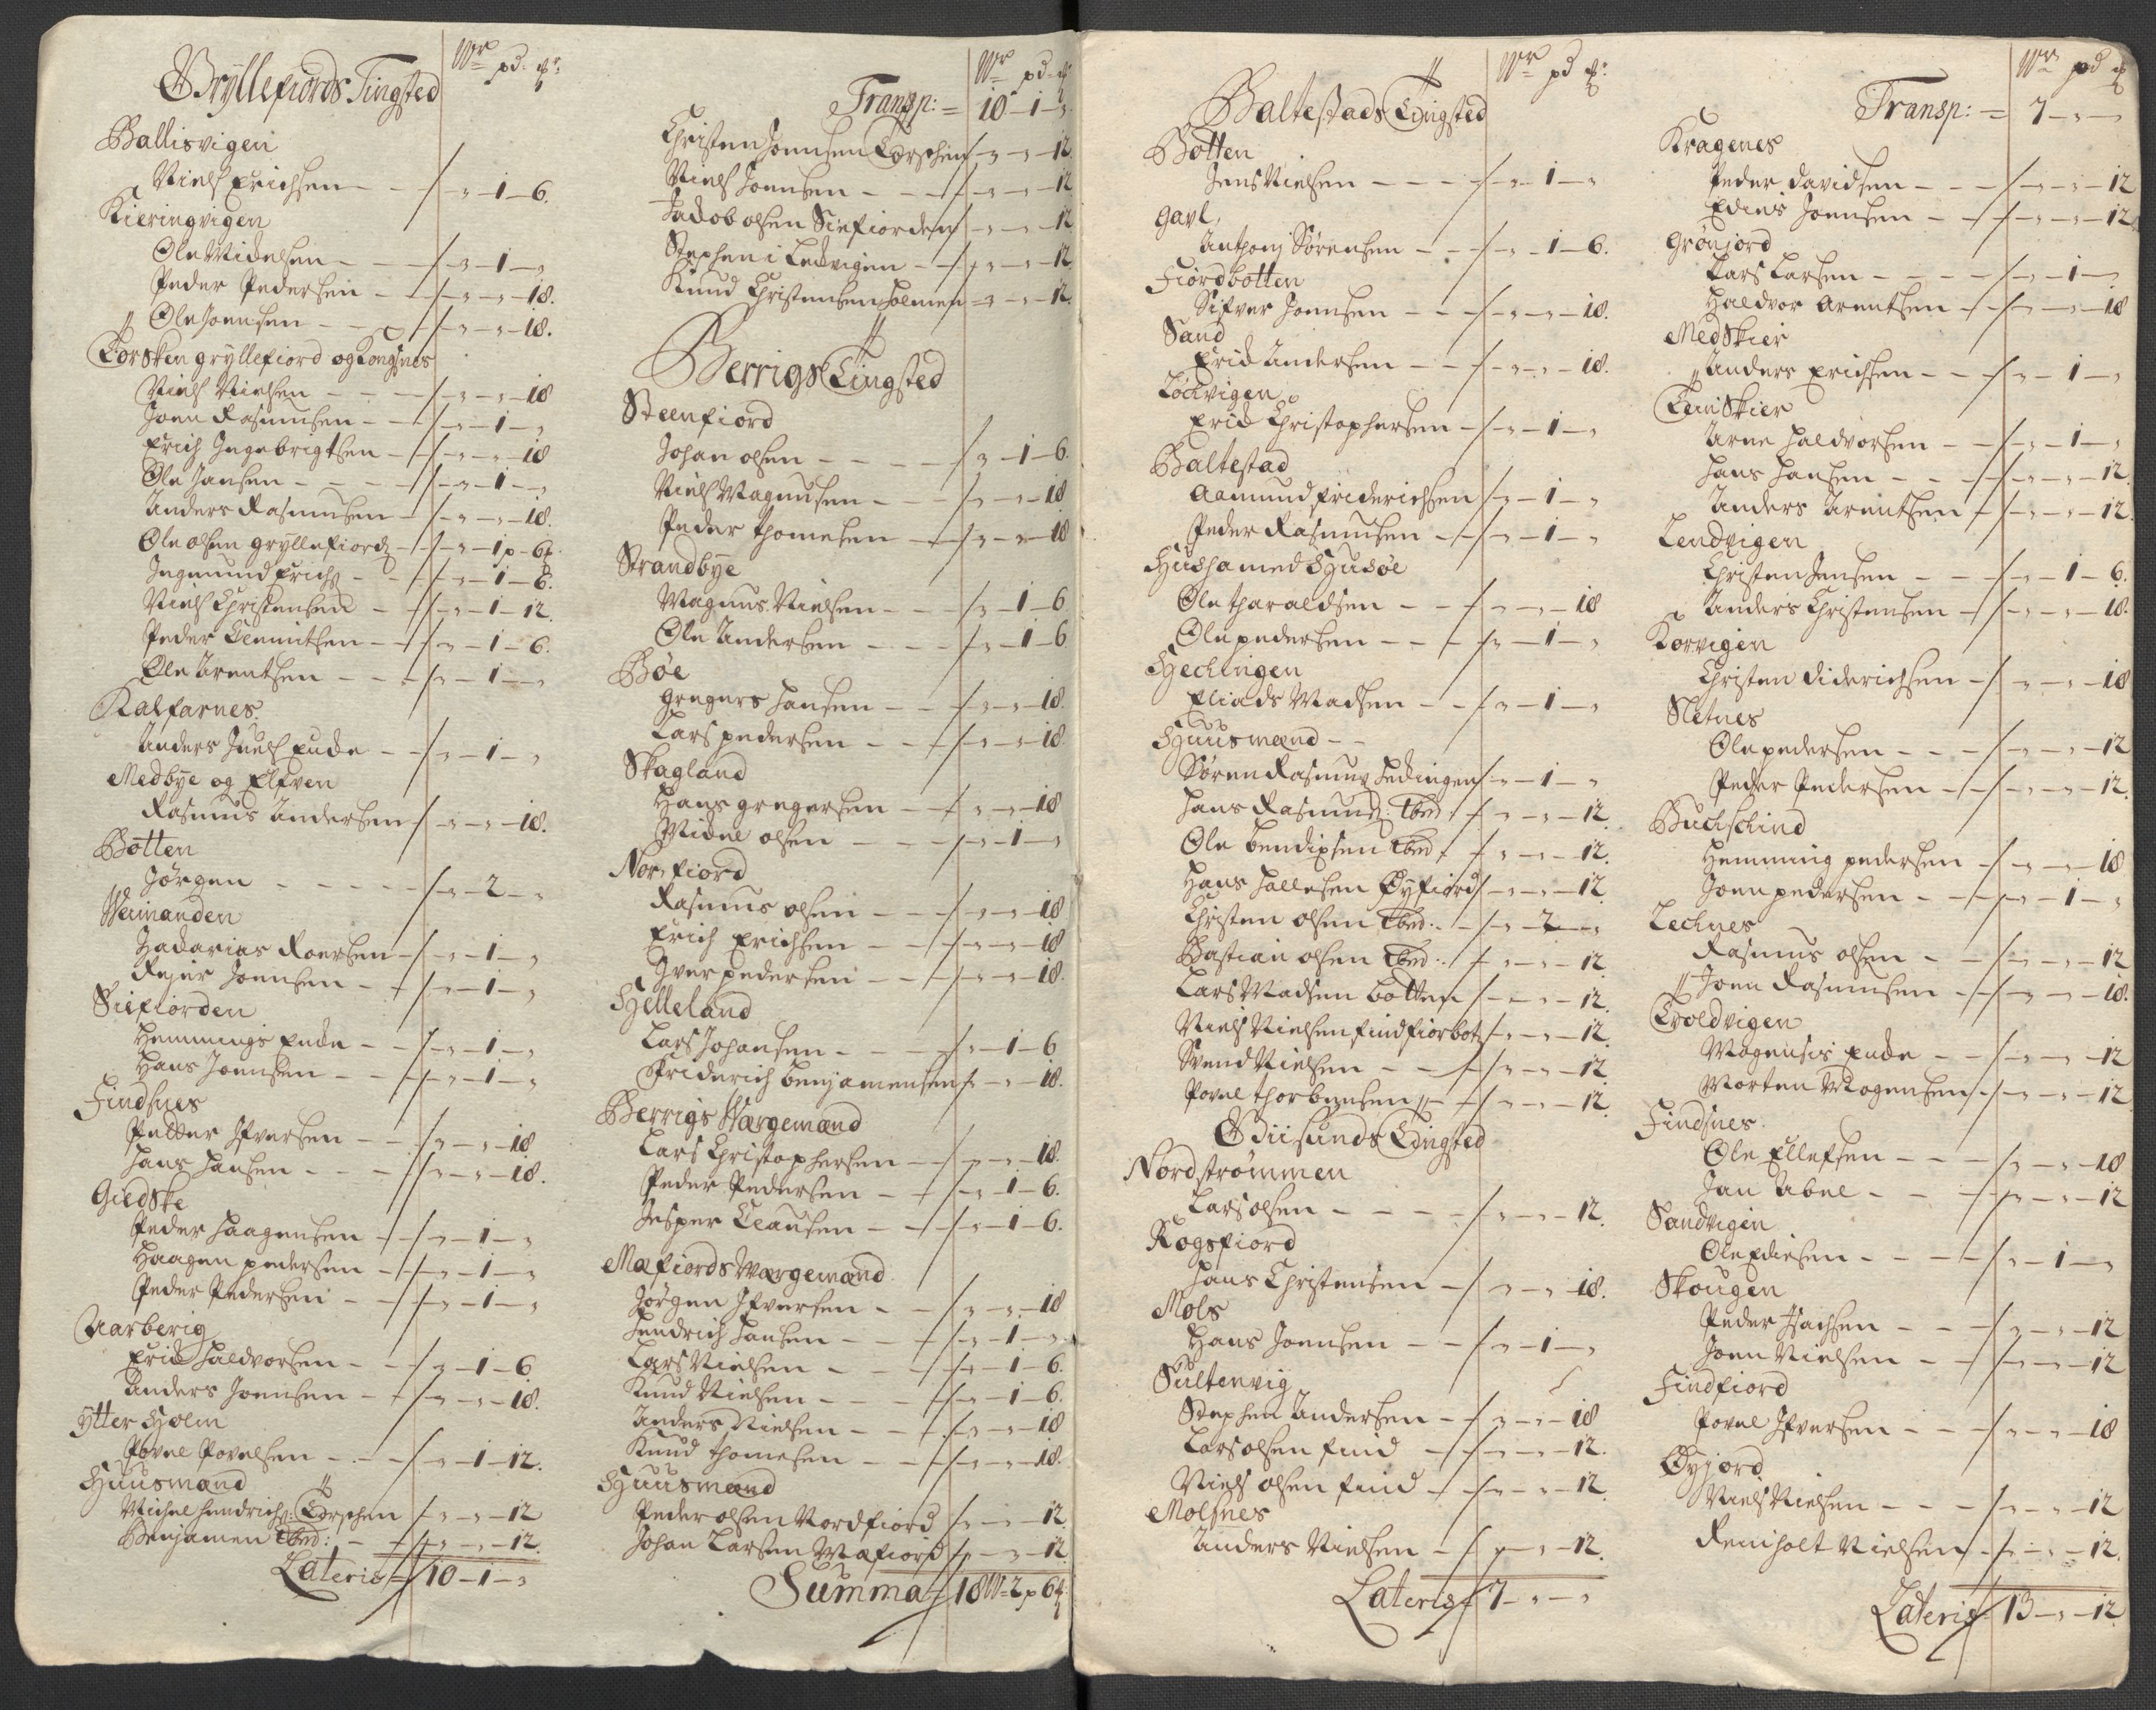 Gryllefiords Tingsted Wr pd. #:
Ballisvigen
Niels Erichsen - - „ - 1 - 6.
Kieringvigen
Ole Michelsen - - „ - 1 - „
Peder Pedersen - - „ - „ - 18.
Ole Joensen - - „ - „ - 18.
Torsken gryllefiord og Kongsnes
Niels Nielsen - - „ - „ - 18
Joen Rasmusen - - „ - 1 - „
Erich Ingebrigtsen - „ - „ - 18
Ole Jansen - - - „ - 1 - „
Anders Rasmusen - „ - „ - 18.
Ole olsen gryllefiord - „ - 1p - 6#.
Ingmund Erichs - - „ - 1 - 6.
Niels Christensen - „ - 1 - 12.
Peder Clemitsen - „ - 1 - 6.
Ole Arentsen - - - „ - 1 - „
Kalfarnes.
Anders Juels Enche - - „ - 1 - „
Medbye og Elfven
Rasmus Andersen „ - „ - 18.
Botten
Jørgen - - - - „ - 2 - „
Weimanden
Zacharias Roersen - „ - 1 - „
Rejer Joensen - - „ - 1 - „
Siefiorden
Hemmings Enche - - „ - 1 - „
Hans Joensen - - „ - 1 - „
Findsnes
Petter Ifversen - - „ - „ - 18.
Hans Hansen - - - „ - „ - 18.
Giedske
Peder Haagensen - „ - 1 - „
Haagen pedersen - „ - 1 - „
Peder Pedersen - - „ - 1 - „
Aarberig
Erich Haldvorsen - - „ - 1 - 6
Anders Joensen - - „ - „ - 18.
Ytter Holm
Povel Povelsen - - - „ - 1 - 12.
Huusmænd
Michel Hendrichs: Torschen „ - „ - 12
Benjamen ibid: - - „ - „ - 12.
Lateris = 10 - 1 - „
Wr pd. #
Transp: = 10 - 1 - „
Christen Joensen Torschen - „ - „ - 12.
Niels Joensen - - - - „ - „ - 12
Jacob olsen Siefiorden „ - „ - 12
Stephen i Lechvigen - - „ - „ - 12.
Knud Christensen Holmen - „ - „ - 12.
Berrigs Tingsted
Steenfiord
Johan olsen - - - - „ - 1 - 6.
Niels Magnusen - - - „ - „ - 18
Peder Thomesen - - „ - „ - 18
Strandbye
Magnus. Nielsen - - - „ - 1 - 6
Ole Andersen - - - - „ - 1 - 6
Bøe
Gregers Hansen - - „ - „ - 18.
Lars pedersen - - - „ - „ - 18.
Skagland
Hans gregersen - - „ - „ - 18
Michel olsen - - - - „ - 1 - „
Nor fiord
Rasmus olsen - - - „ - „ - 18
Erich Erichsen - - - „ - „ - 18
Iver pedersen - - - „ - „ - 18.
Helleland
Lars Johansen - - - - „ - 1 - 6
Friderich benjamensen „ - „ - 18.
Berrigs Wærgemænd
Lars Christophersen - - „ - „ - 18.
Peder Pedersen - - „ - 1 - 6.
Jesper Clausen - - „ - 1 - 6.
Mæfiords Wærgemænd
Jørgen Ifversen - - „ - „ - 18
Hendrich Hansen - - - „ - 1 - „
Lars Nielsen - - - „ - 1 - 6.
Knud Nielsen - - - - „ - 1 - 6.
Anders Nielsen - - - „ - „ - 18
Knud Thomesen - - - „ - „ - 18.
Huusmænd
Peder olsen Nordfiord „ - „ - 12
Johan Larsen Mæfiord „ - „ - 12
Summa = 18W - 2p 6#
Wr pd #:
Baltestads Tingsted
Botten
Jens Nielsen - - - - „ - 1 - „
Gavl.
Anthonj Sørensen - - - „ - 1 - 6.
Fiordbotten
Sifver Joensen - - - „ - „ - 18.
Sand
Erich Andersen - - - „ - „ - 18.
Løchvigen
Erich Christophersen - „ - 1 - „
Baltestad
Aamund friderichsen „ - 1 - „
Peder Rasmusen - - „ - 1 - „
Husha med Husøe
Ole Tharaldsen - - - „ - „ - 18
Ole pedersen - - - - „ - 1 - „
Hechingen
Eliads Madsen - - „ - 1 - „
Huusmænd - -
Søren Rasmus Hechingen „ - 1 - „
Hans Rasmus: ibid: „ - „ - 12
Ole bendixsen ibid. - „ - „ - 12.
Hans Hallesen Øyfiord „ - „ - 12
Christen olsen ibid: - „ - 2 - „
Bastian olsen ibid: - „ - „ - 12
Lars Madsen botten „ - „ - 12
Niels Nielsen find fiorbot „ - „ - 12
Svend Nielsen - - - „ - „ - 12
Povel thorbensen - - „ - „ - 12.
Giisunds Tingsted
Nordstrømmen
Lars olsen - - - - „ - „ - 12.
Rogsfiord
Hans Christensen - „ - „ - 18.
Mols
Hans Joensen - - „ - 1 - „
Sultenvig
Stephen Andersen - - „ - „ - 18
Lars olsen find - - „ - „ - 12.
Niels olsen find - - „ - „ - 12.
Molsnes
Anders Nielsen - - „ - „ - 12.
Lateris = 7 - „ - „
Wr pd #
Transp: = 7 - „ -
Kragenes
Peder Davidsen - - - „ - „ - 12
Edies Joensen - - - „ - „ - 12
Grønjord
Lars Larsen - - - - „ - 1 - „
Haldvor Arentsen - - „ - „ - 18
Medskier
Anders Erichsen - - - „ - 1 - „
Leinskier
Arne Haldvorsen - - „ - 1 - „
Hans Hansen - - - „ - „ - 12.
Anders Arentsen - „ - „ - 12.
Lendvigen
Christen Jensen - - - „ - 1 - 6.
Anders Christensen - „ - „ - 18.
Korvigen
Christen Diderichsen - „ - „ - 18
Sletnes
Ole pedersen - - - „ - „ - 12
Peder Pedersen - - „ - „ - 12.
Buchschind
Hemming pedersen - „ - „ - 18
Joen pedersen - - - „ - 1 - „
Lechnes
Rasmus olsen - - „ - „ - 12
Joen Rasmusen - - „ - „ - 18.
Troldvigen
Mogenses Enche - - „ - „ - 12
Morten Mogensen - „ - „ - 12
Findsnes.
Ole Ellefsen - - - „ - „ - 18
Jan Abel - - - „ - „ - 12
Sandvigen
Ole Ediesen - - - - „ - 1 - „
Skougen
Peder Isachsen - - - „ - „ - 12
Joen Nielsen - - „ - „ - 12
Findfiord
Povel Ifversen - - - „ - „ - 18
Øyjord
Niels Nielsen - - - „ - „ - 12
Reinholt Nielsen - „ - „ - 12.
Lateris = 13 - „ - 12